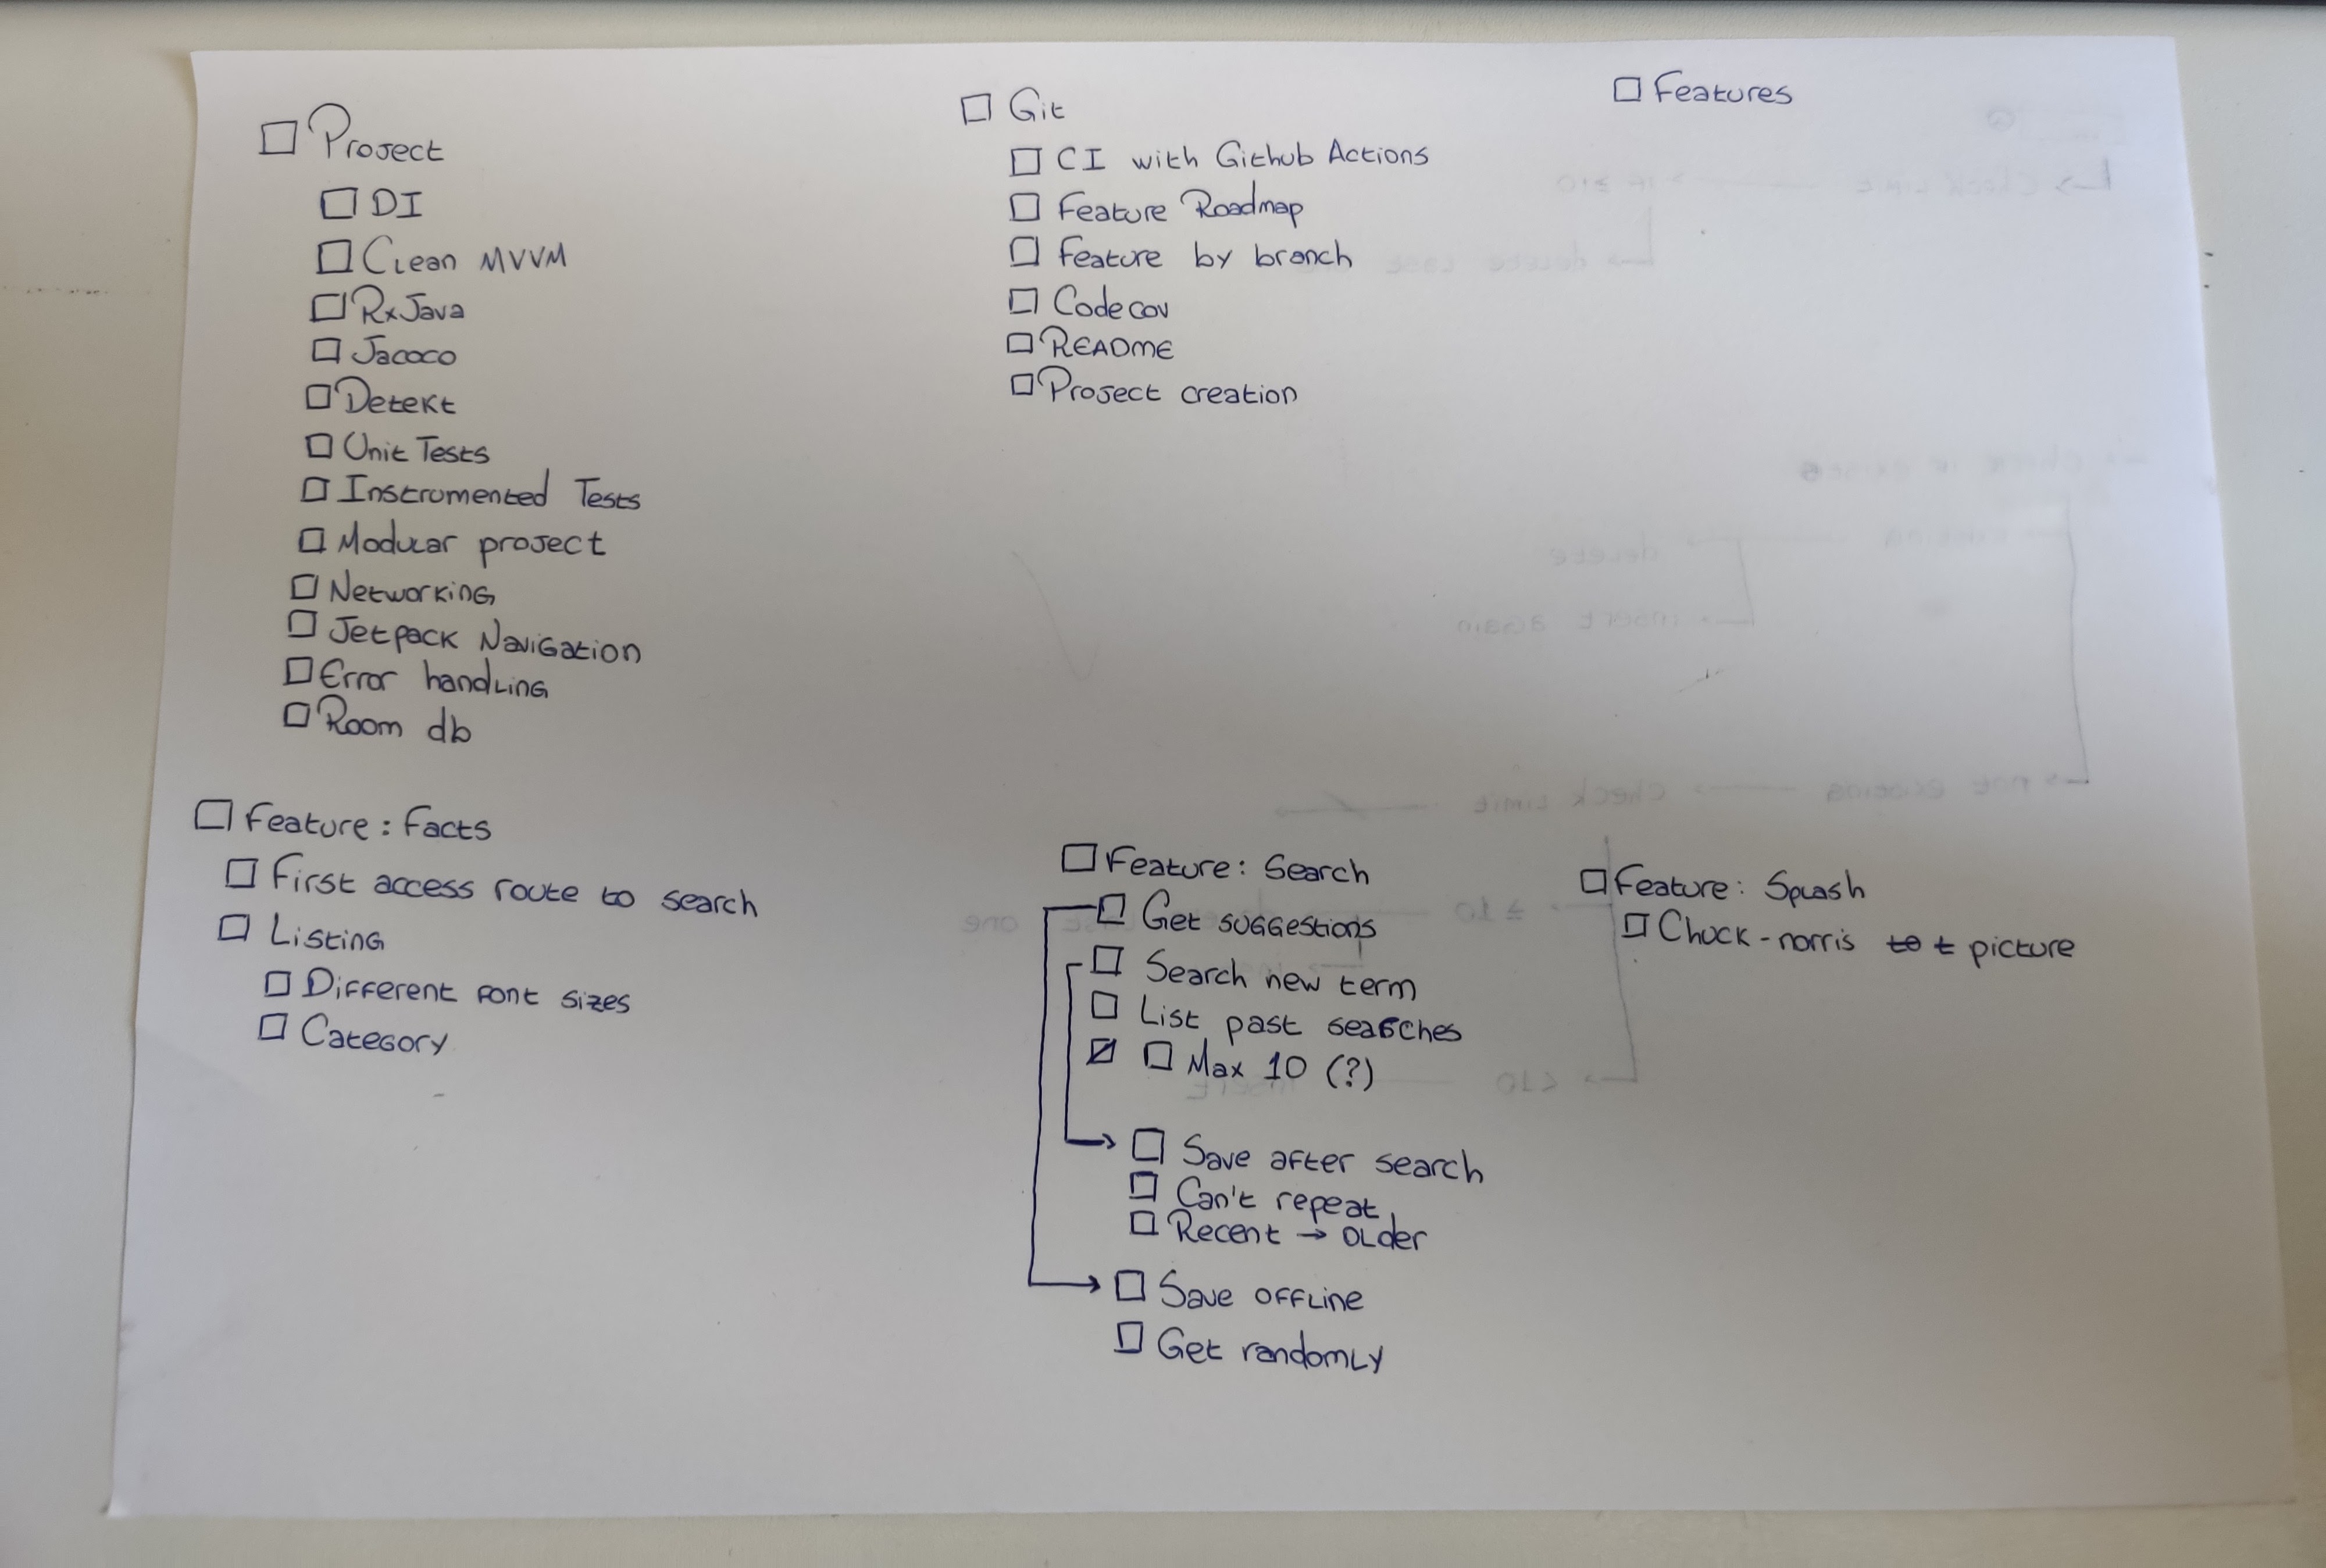 ☐ Project
☐ DI
☐ Clean MVVM
☐ RxJava
☐ Jacoco
☐ Detekt
☐ Unit Tests
☐ Instrumented Tests
☐ Modular project
☐ Networking
☐ Jetpack Navigation
☐ Error handling
☐ Room db
☐ Git
☐ CI with Github Actions
☐ Feature Roadmap
☐ Feature by branch
☐ Codecov
☐ README
☐ Project creation
☐ Features
☐ Feature: Facts
☐ First access route to search
☐ Listing
☐ Different font sizes
☐ Category
☐ Feature: Search
☐ Get suggestions
☐ Search new term
☐ List past searches
☐ Max 10 (?)
☐ Save after search
☐ Can't repeat
☐ Recent → older
☐ Save offline
☐ Get randomly
☐ Feature: Splash
☐ Chuck-norris picture